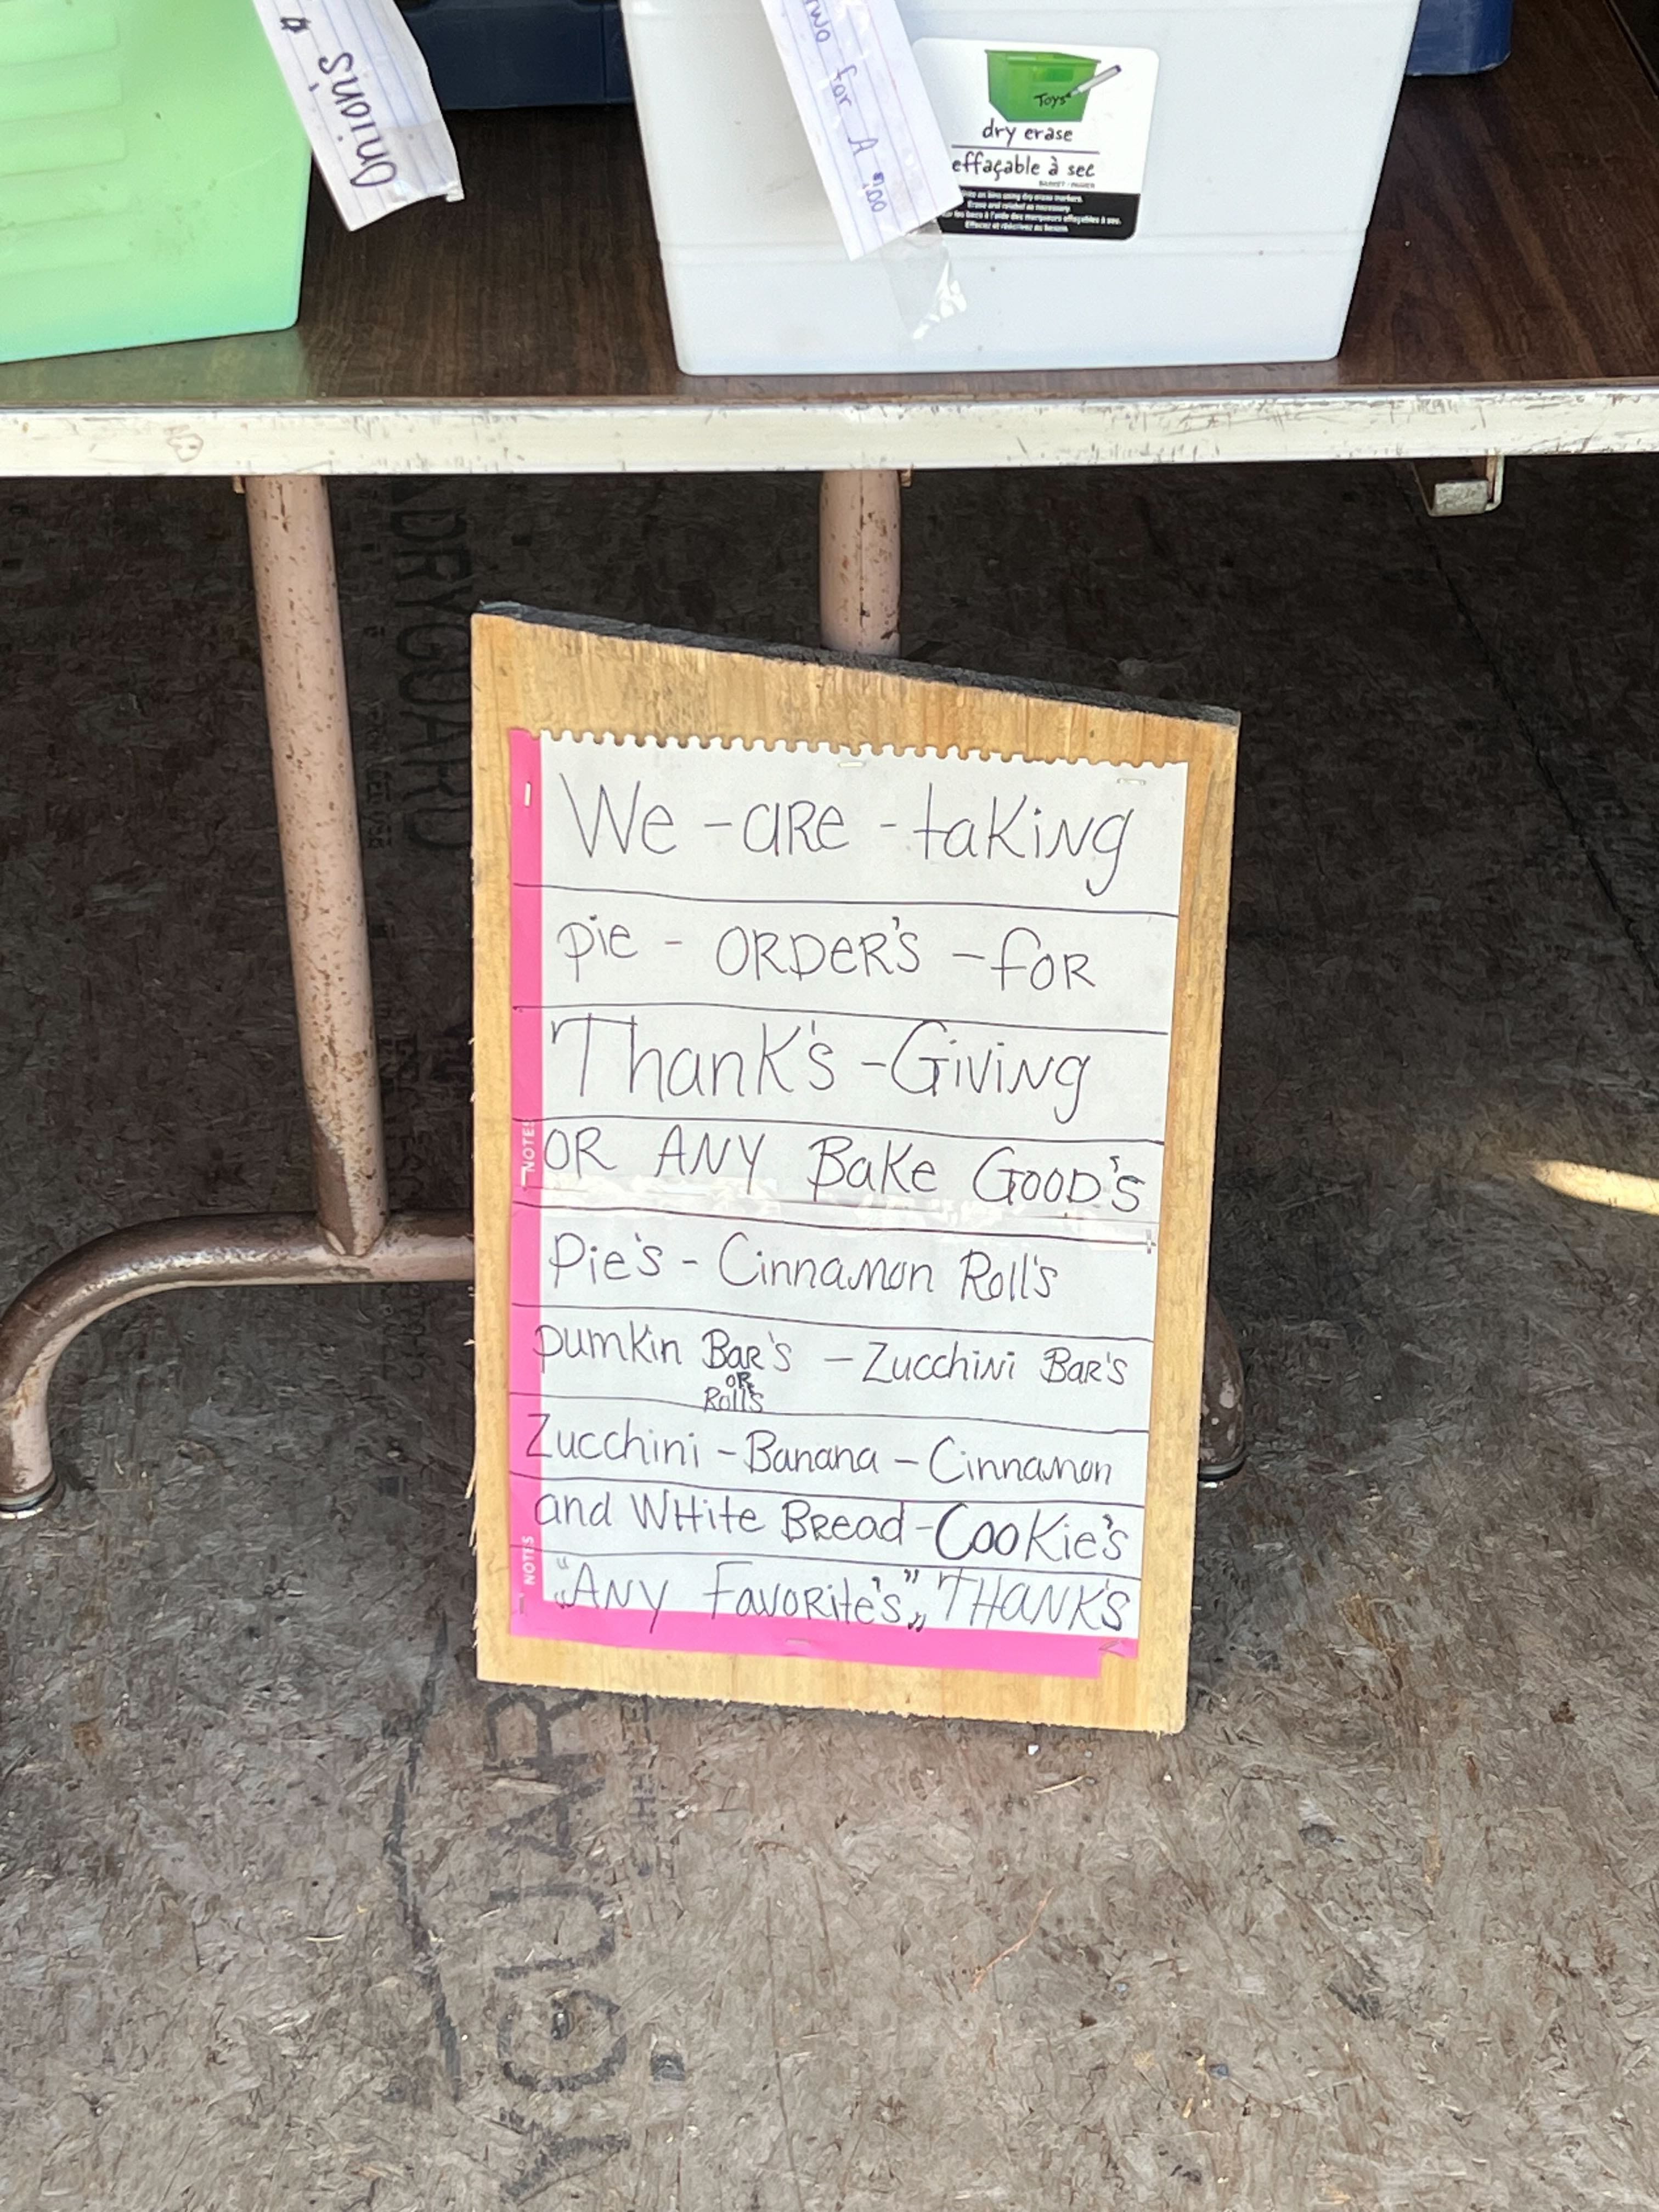 Onion's $
Two for A $.00
Toys
dry erase
effaçable à sec
We - are - taking
pie - ORDER'S - for
Thank's - Giving
OR ANY Bake GOOD'S
Pie's - Cinnamon Roll's
pumkin Bar's - Zucchini Bar's
OR
Roll's
Zucchini - Banana - Cinnamon
and WHite Bread - COOKie's
"ANY Favorite's", THANK'S
NOTES
NOTES